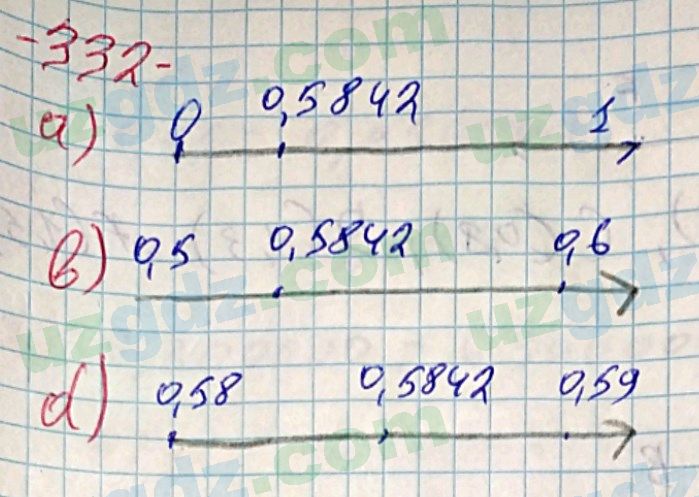 -332-
a) 0 0,5842 1
b) 0,5 0,5842 0,6
d) 0,58 0,5842 0,59
uzgdz.com